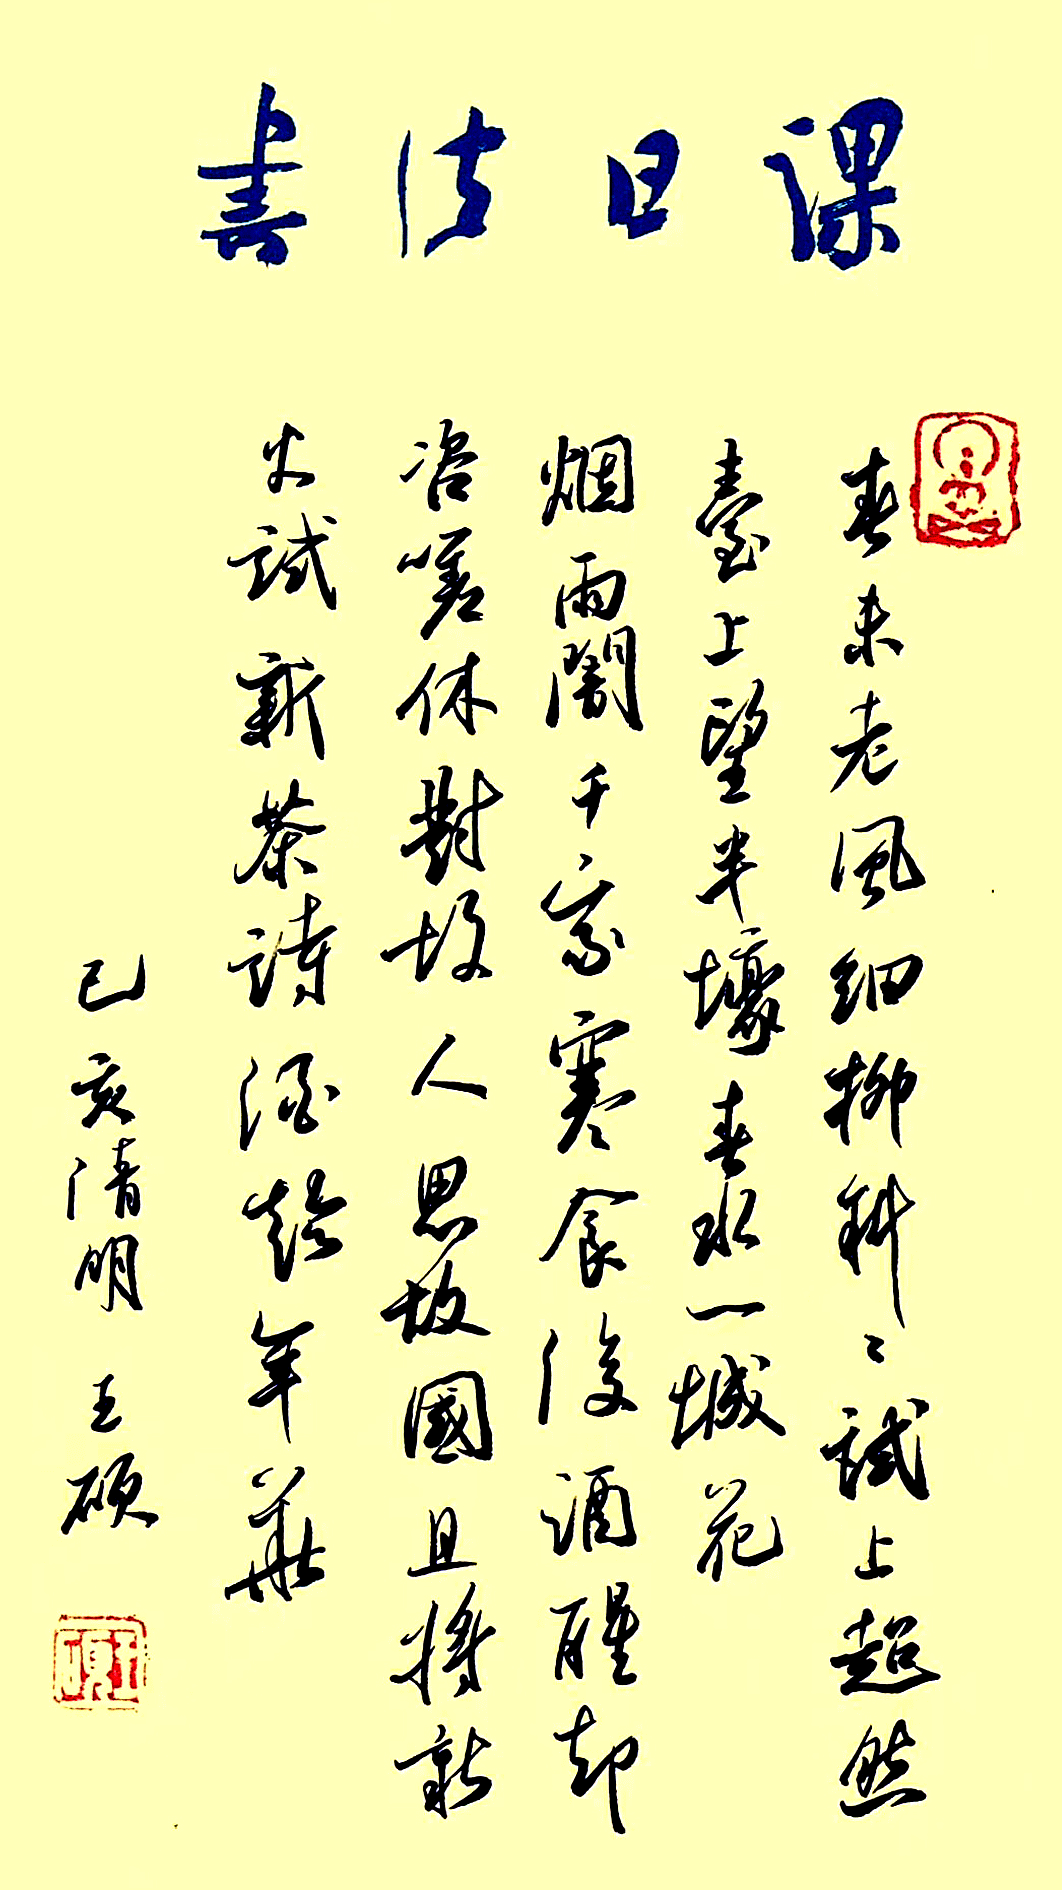 書法日課
春未老風細柳斜〻試上超然
臺上望半壕春水一城花
烟雨闇千家寒食後酒醒却
咨嗟休對故人思故國且將新
火試新茶詩酒趁年華
己亥清明 王硕
王碩